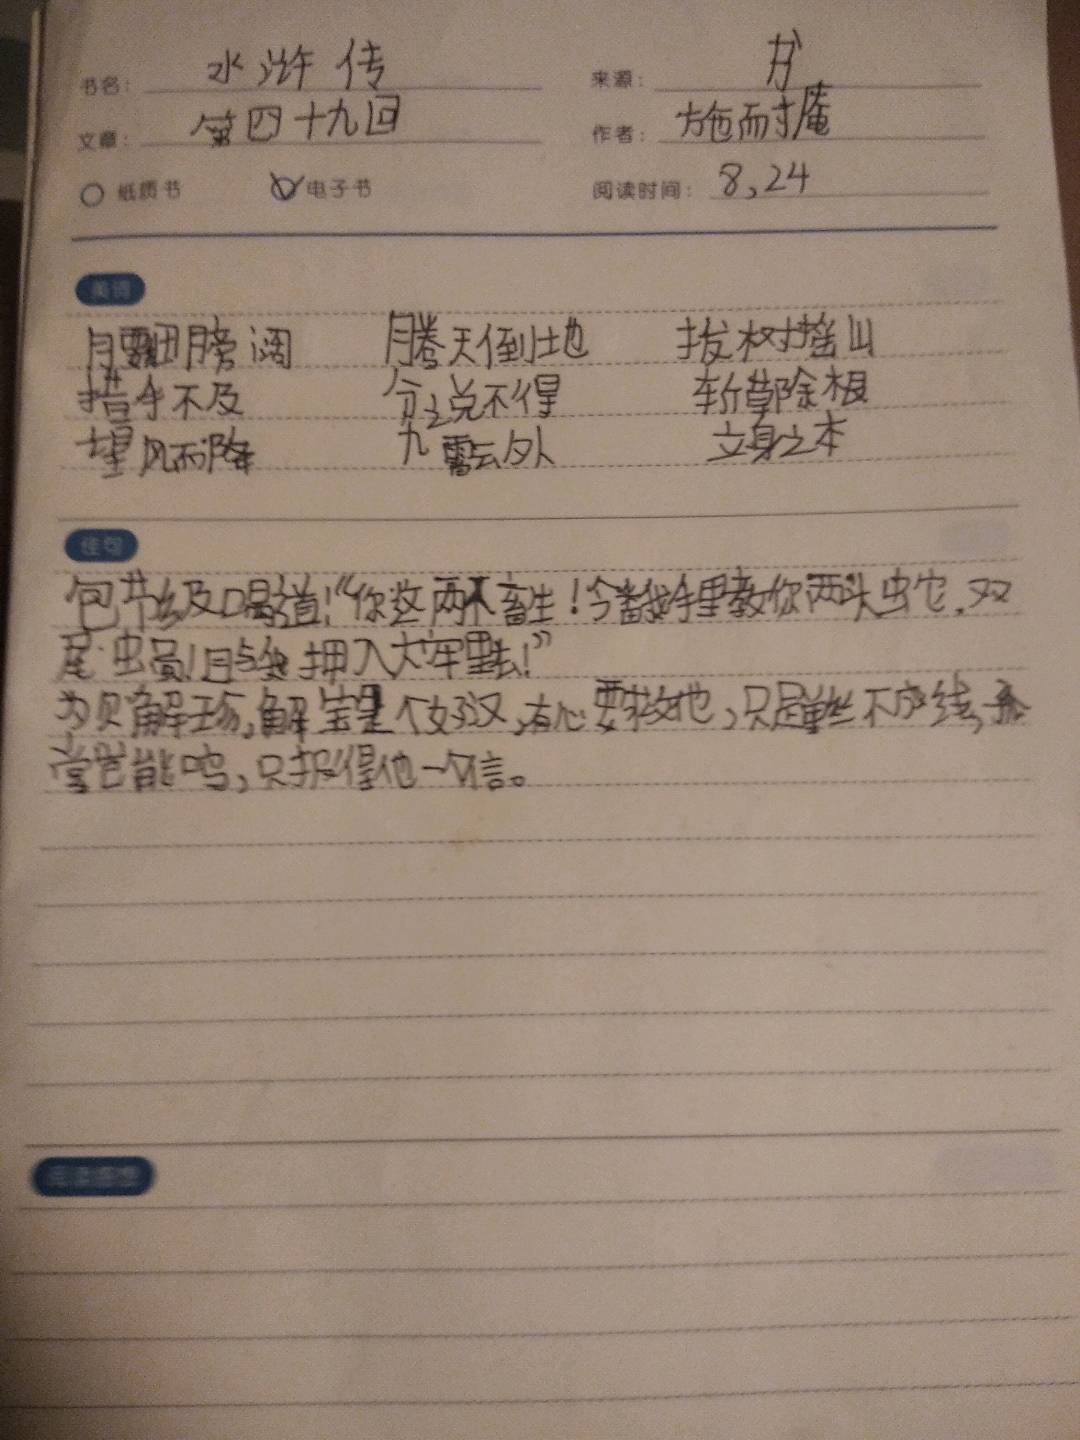 书名： 水浒传 来源： 书
文章： 第四十九回 作者： 施耐庵
纸质书 电子书 阅读时间： 8,24
美词
腰细膀阔 腾天倒地 拔树摇山
措手不及 分说不得 斩草除根
望风而降 九霄云外 立身之本
佳句
包节级喝道！“你这两个畜生！今番我手里教你两头蛇，双
尾 ！且与我押入大牢里去！”
为见解珍，解宝是个好汉，有心要救他，只是单丝不成线，孤
掌岂能鸣，只报得他一个信。
阅读感想